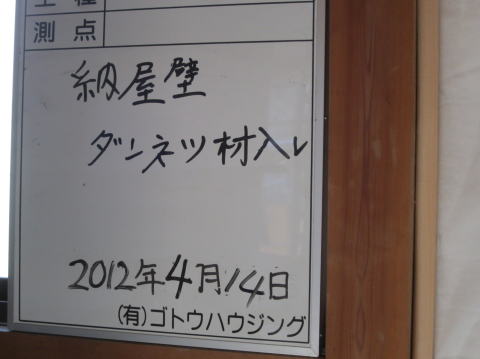 工種
測点
納屋壁
ダンネツ材入レ
2012年4月14日
(有)ゴトウハウジング